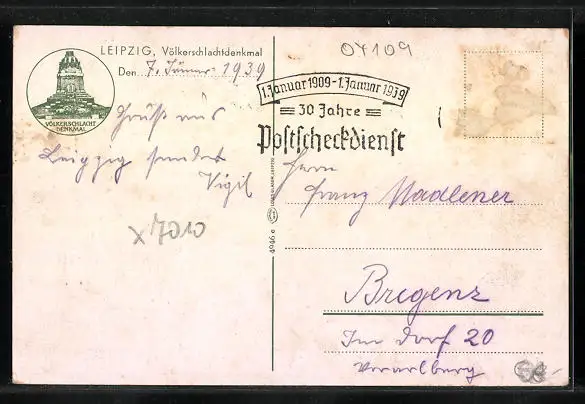 LEIPZIG, Völkerschlachtdenkmal
Den 7. Jänner 1939
VÖLKERSCHLACHT
DENKMAL
Gruß aus
Leipzig sendet
Vigil
x7010
04109
1. Januar 1909 - 1. Januar 1939
30 Jahre
Postscheckdienst
Herrn
Franz Madlener
Bregenz
Im Dorf 20
Vorarlberg
4946 e